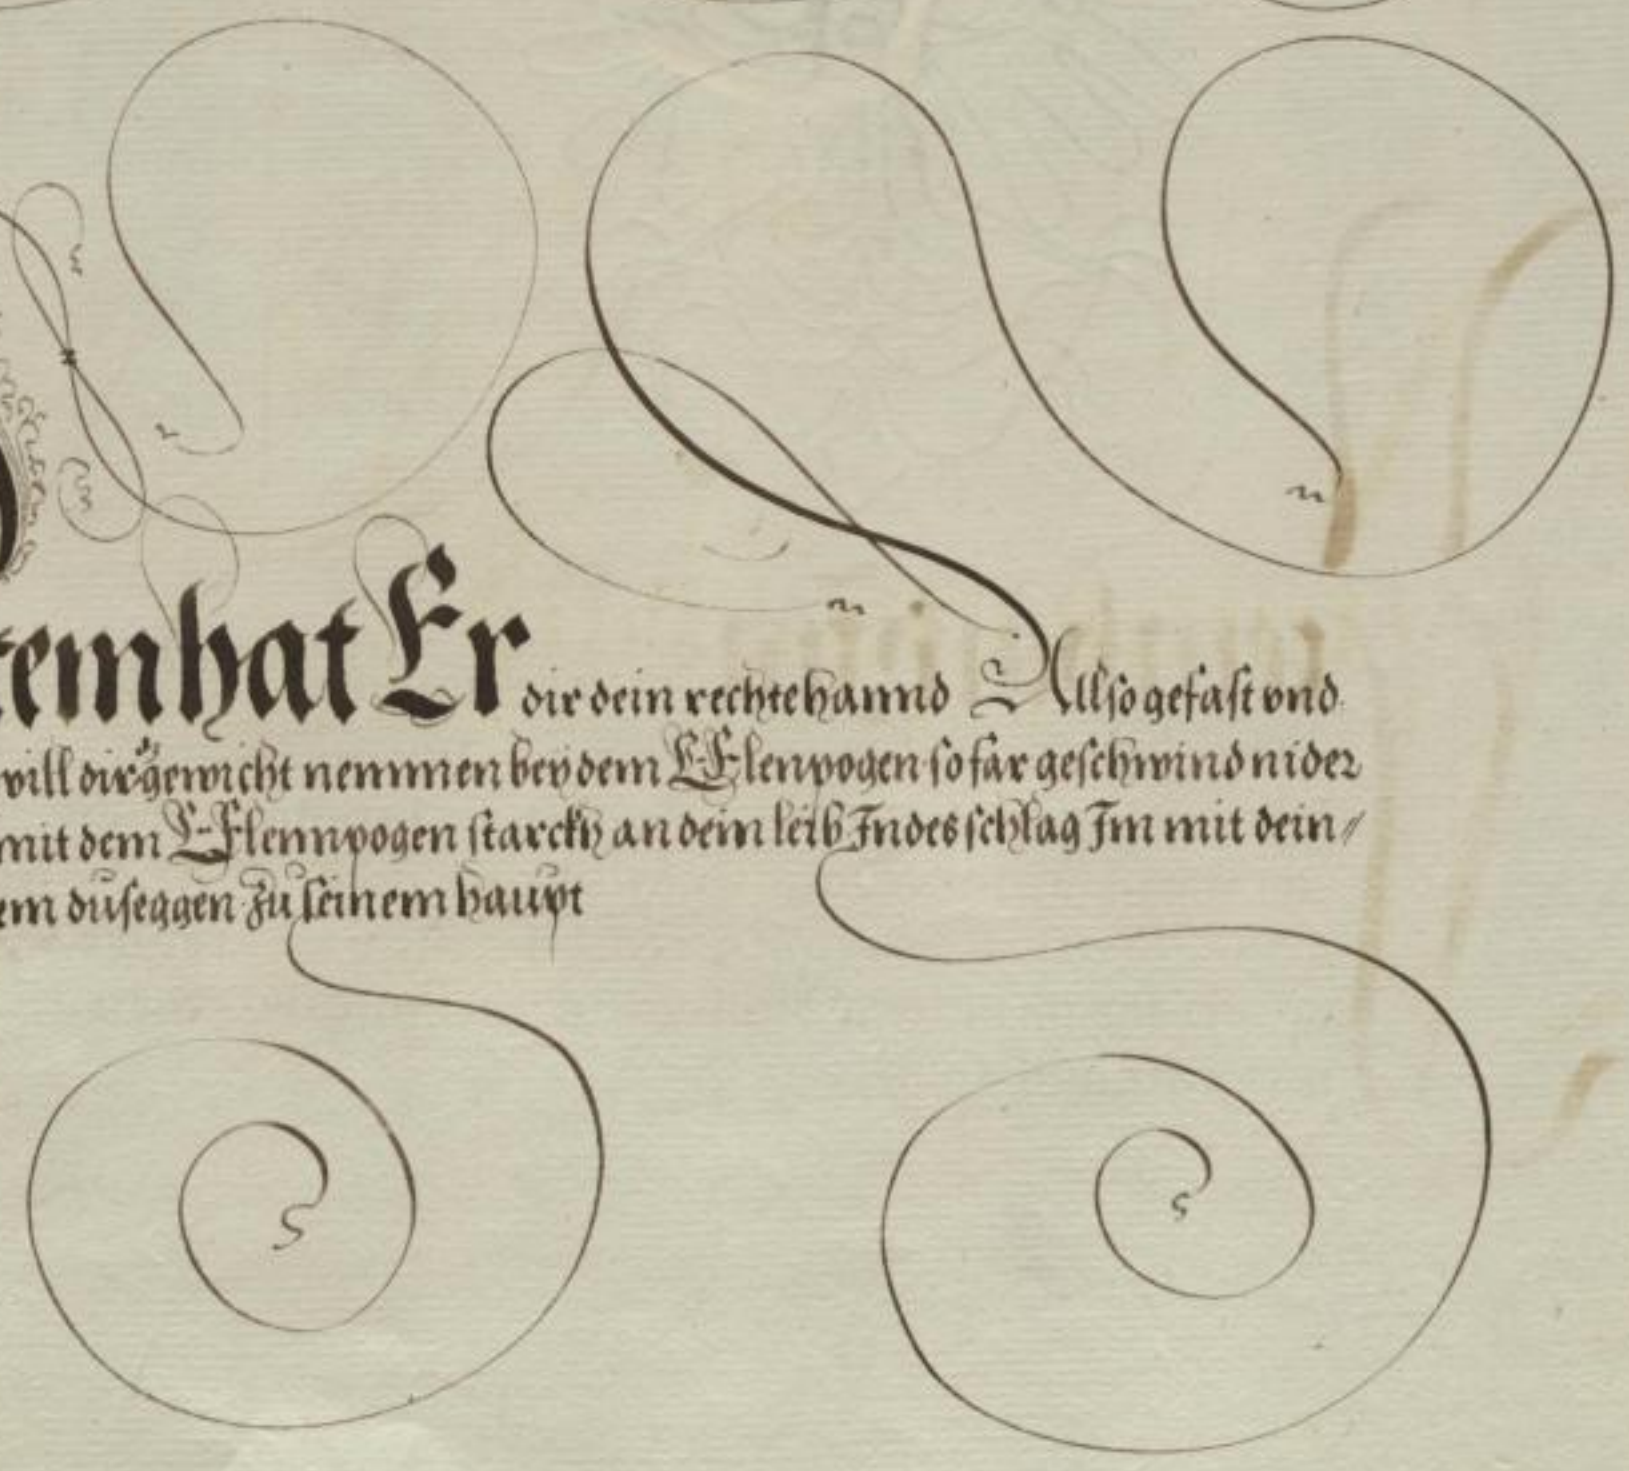 temhat Er dir dein rechte hannd Allso gefast vnd
will dir gewicht nemmen bey dem Elenpogen so far geschwind nider
mit dem Elennpogen starckh an dein leib Indes schlag Im mit dein//
em duseggen zu seinem haupt